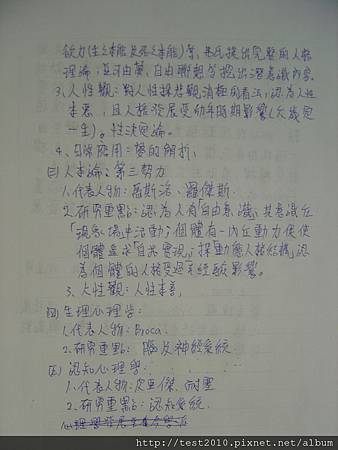 欲力(生之本能及死之本能)等,
理論,
自由聯想
3、人性觀:對人性採悲觀消極的看法,認為人性
本惡,且人格發展受幼年時期影響
一生)。性決定論。
4、日常應用:夢的解析,
(三)人本論:第三勢力
1.代表人物:馬斯洛、羅傑斯.
2.研究重點:認為人有「自由意識」,其意識在
「現象場中活動」;個體有一內在動力促使
個體追求「自我實現」;採動態人格結構,認
為個體的人格受過去經驗影響。
3、人性觀:人性本善,
(四)生理心理學:
1.代表人物:Broca.
2.研究重點:腦及神經系統
(五)認知心理學:
1.代表人物:皮亞傑、
2.研究重點:認知系統.
心理學發展
http://test2010.pixnet.net/album